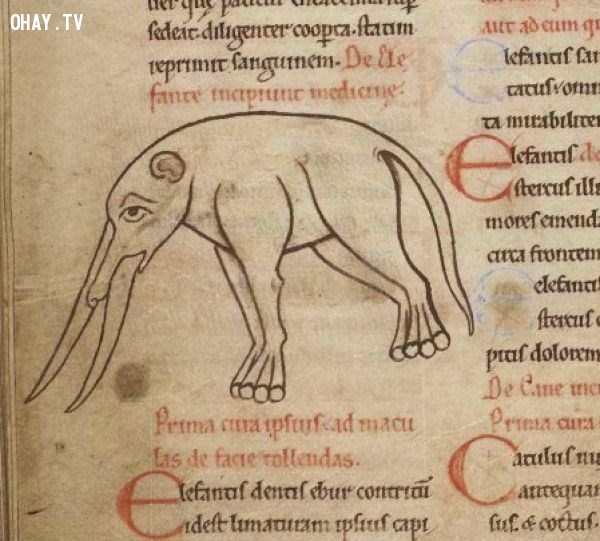 OHAY.TV
sedeat. diligenter cooperta. statim
reprimit sanguinem. De Ele
fante incipiunt medicine.
Prima cura ipsius. ad macu
las de facie tollendas.
Elefantis dentis ebur contritū
idest limaturam ipsius capi
aut ad cum
elefantis
tatus. omni
ta mirabiliter
Elefantis de
stercus illi
mores emenda
circa frontem
elefantis
stercus
pitis dolorem
De Cane inci
Prima cura
Catulus
antequam
sus. & coctus.